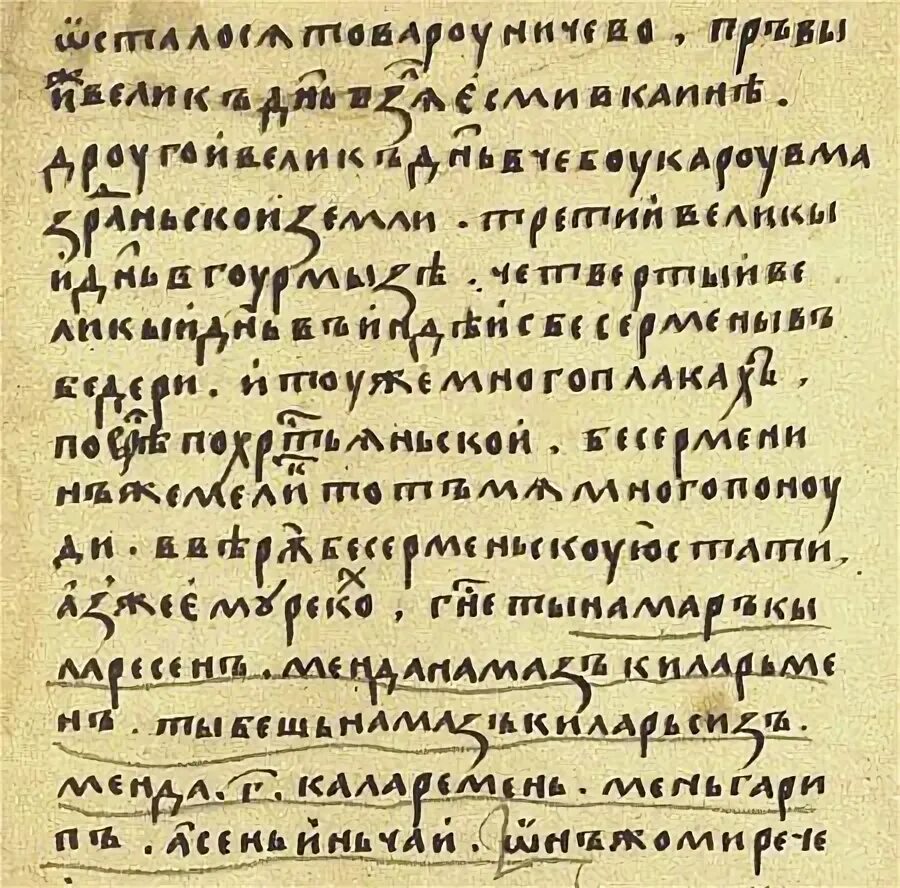 ѿсталосѧ товароу ничево, пръвы
иж҃ великъ дн҃ь взѧ҃ есми в каинѣ.
дроугой великъ дн҃ь в чебоукароу в ма
здраньской земли. третий великы
й дн҃ь в гоурмызѣ. четвертый ве
ликый дн҃ь въ индѣи с бесермены въ
бедери. и тоу же много плакахъ,
по вѣрѣ по хртⷭ҇ьѧньской. бесермени
нъ же меликт҇ тотъ мѧ много поноу
ди. в вѣрⷹ бесерменьскоую стати,
аз же ему рекоⷯ, гн҃е ты намаръ кы
ларесенъ. менда намазъ киларьме
нъ. ты бешь намазъ киларьсизъ.
менда. г҃. каларемень. мень гари
пъ. асень иньчай. ѿнъ ж ко ми рече